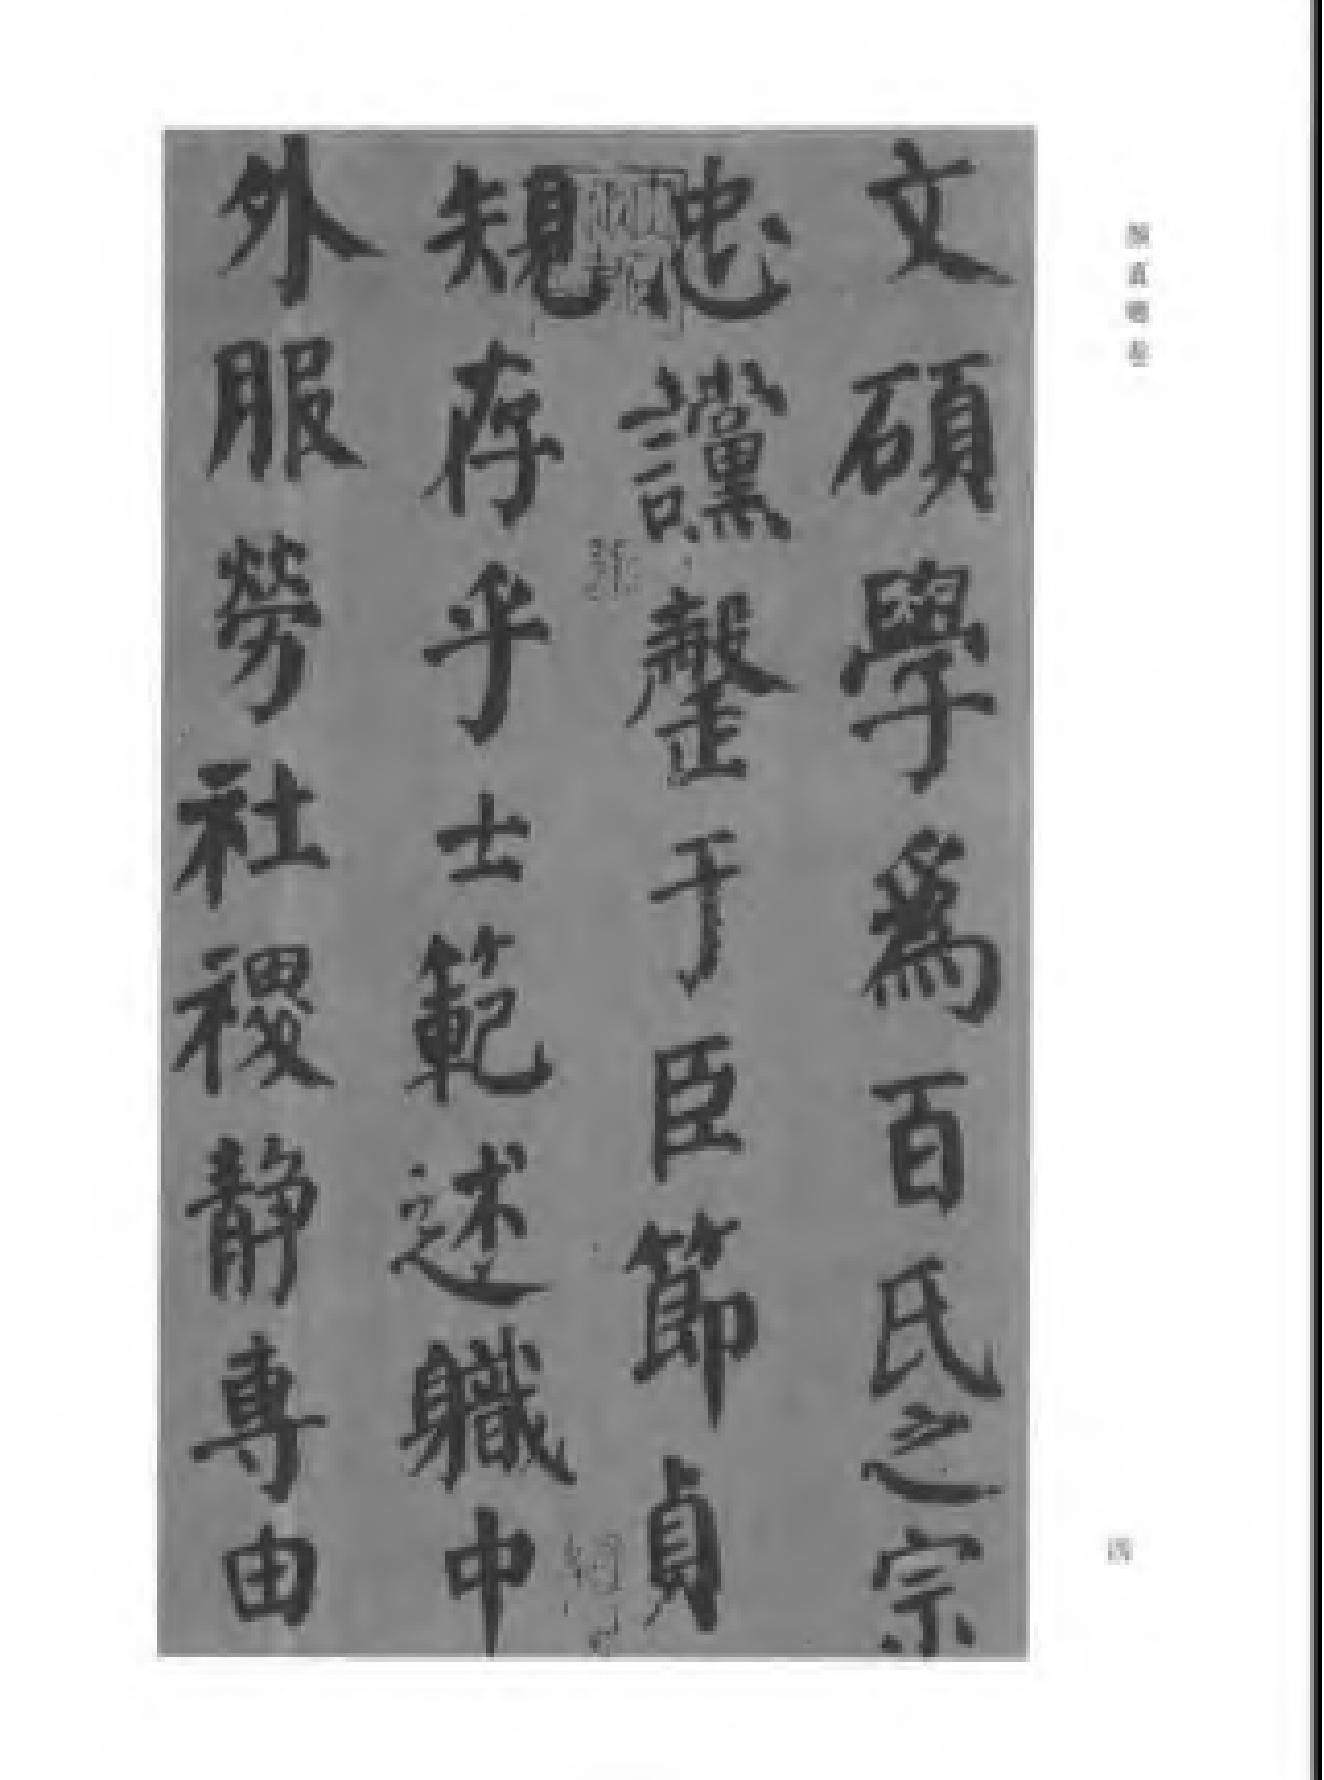 文碩學為百氏之宗
忠讜罄于臣節貞
規存乎士範述職中
外服勞社稷靜專由
四